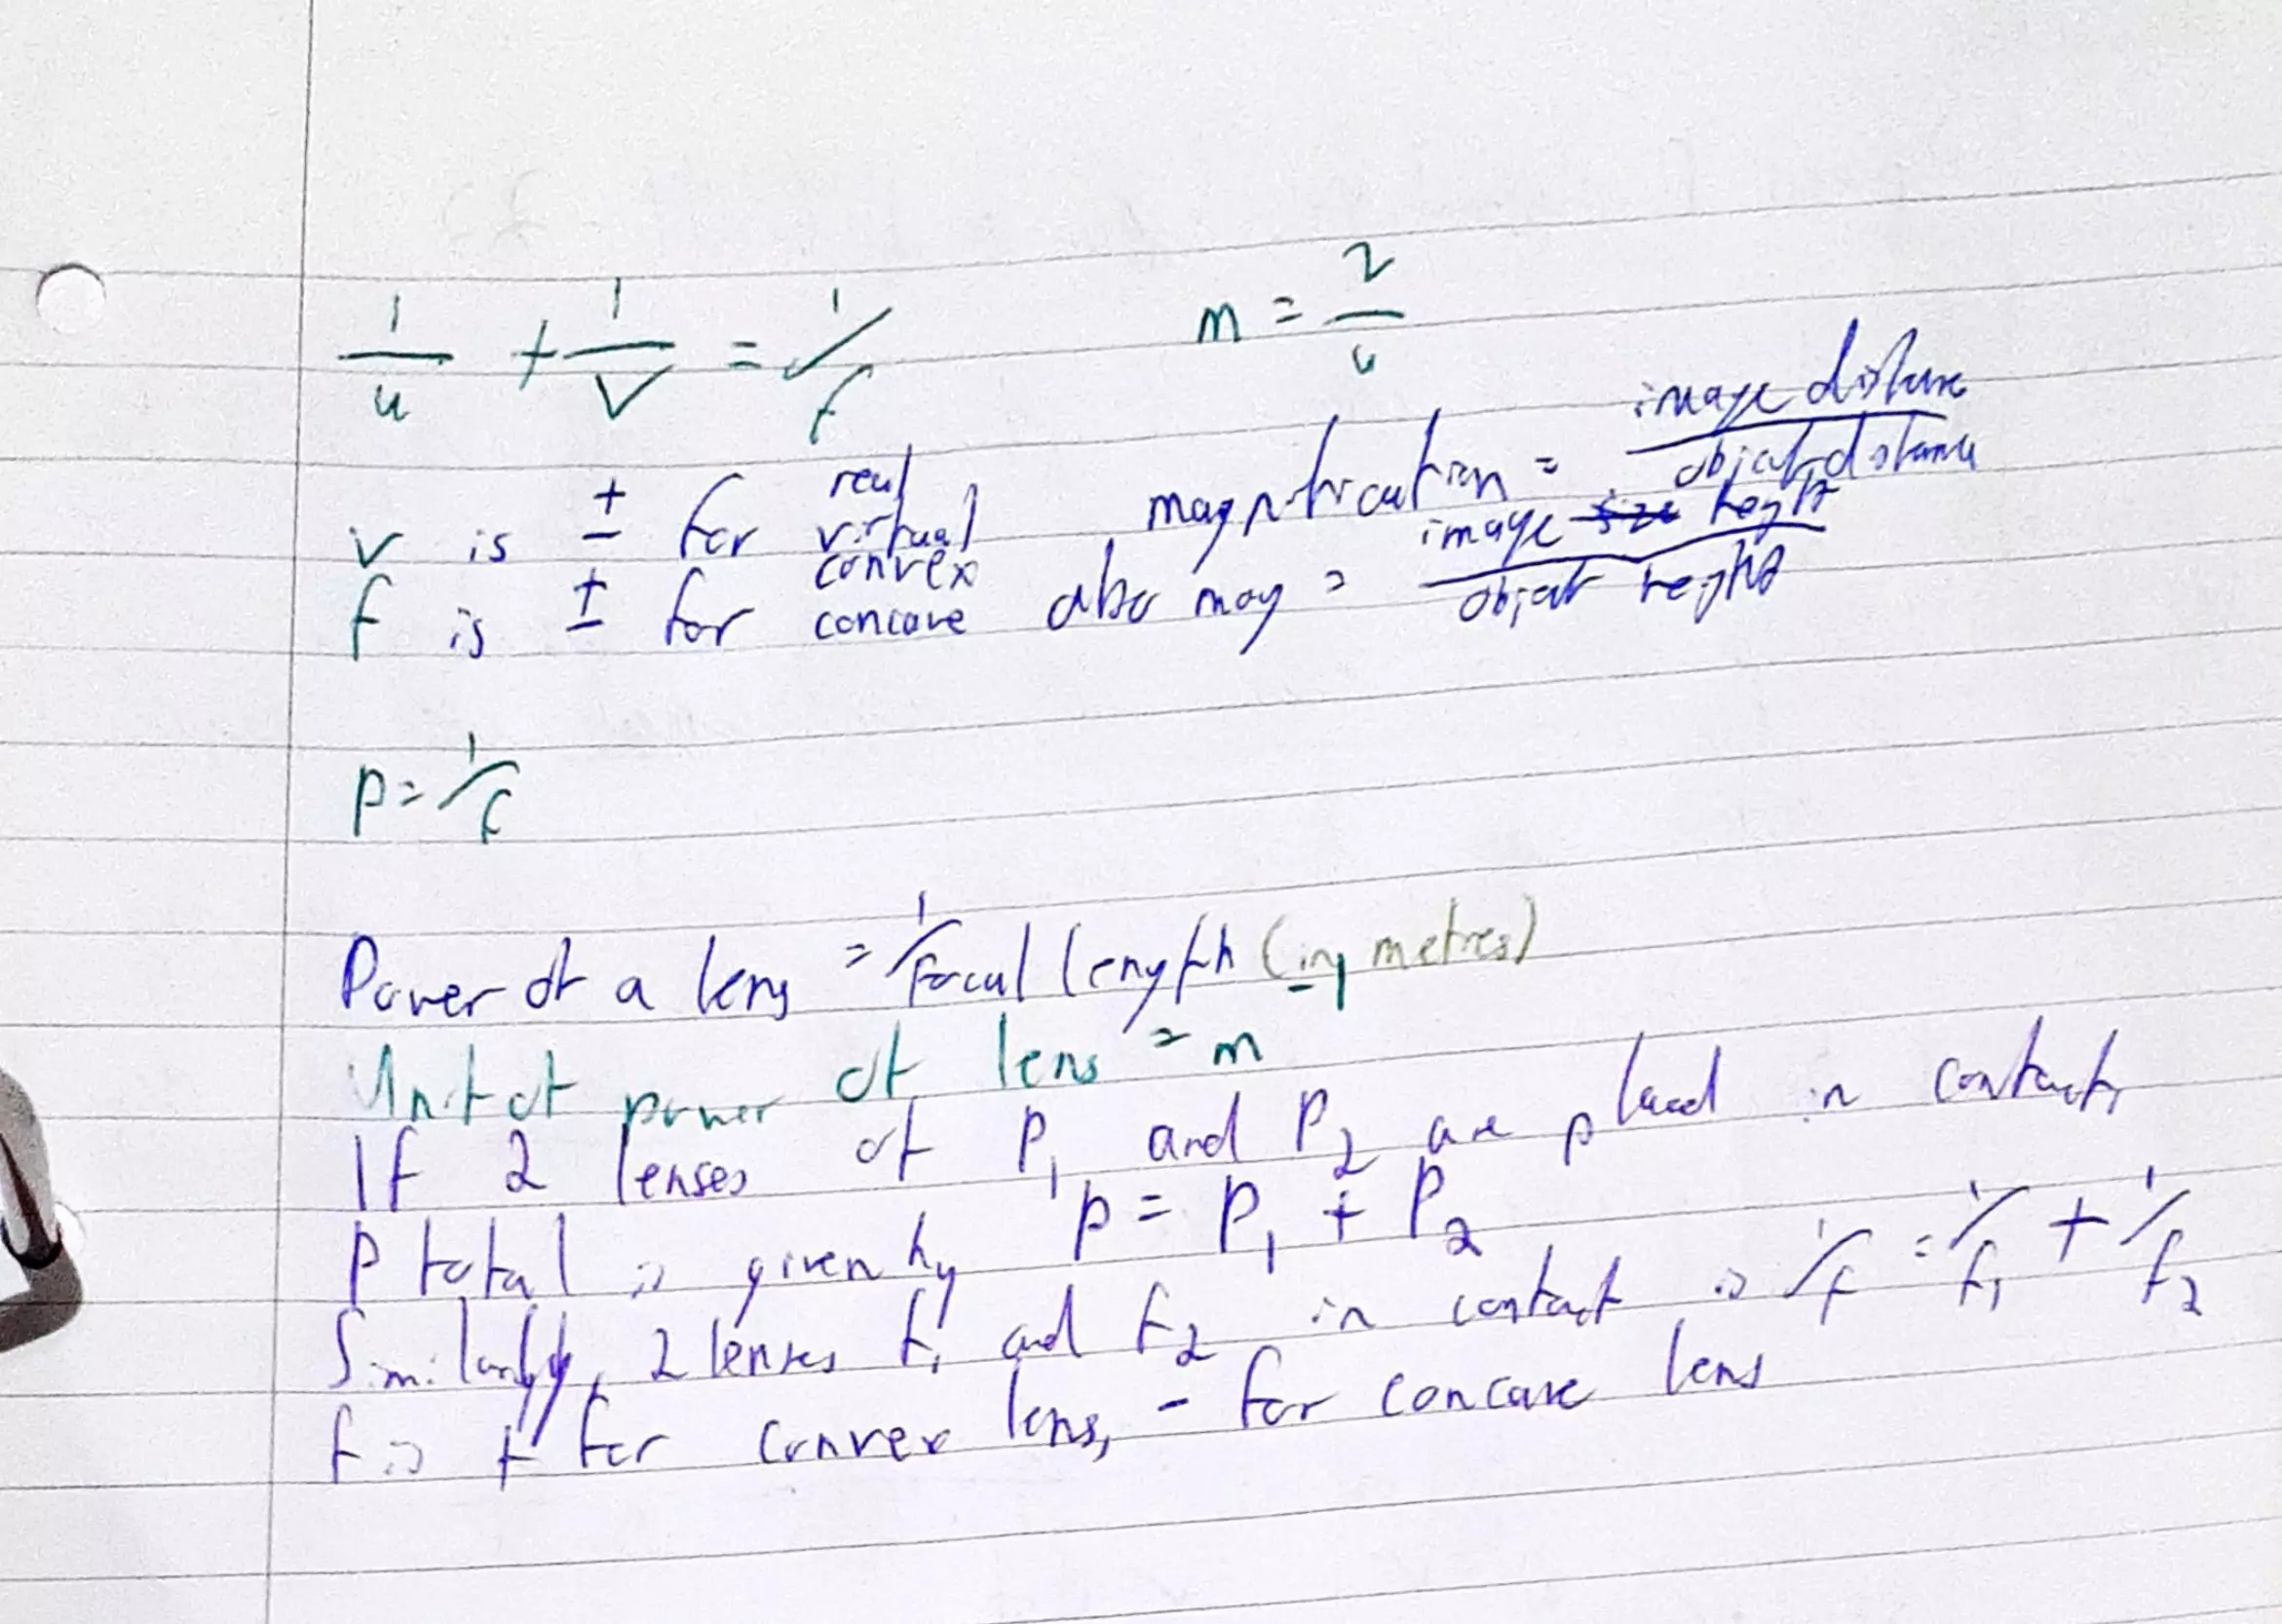 1/u + 1/v = 1/f
m = v/u
v is ± for real virtual
magnification = image distance / object distance
f is ± for convex concave
also mag = image height / object height
P = 1/f
Power of a lens = 1/focal length (in metres)
Unit of power of lens = m⁻¹
If 2 lenses of P₁ and P₂ are placed in contact,
P total is given by P = P₁ + P₂
Similarly, 2 lenses f₁ and f₂ in contact is 1/f = 1/f₁ + 1/f₂
f is + for convex lens, - for concave lens